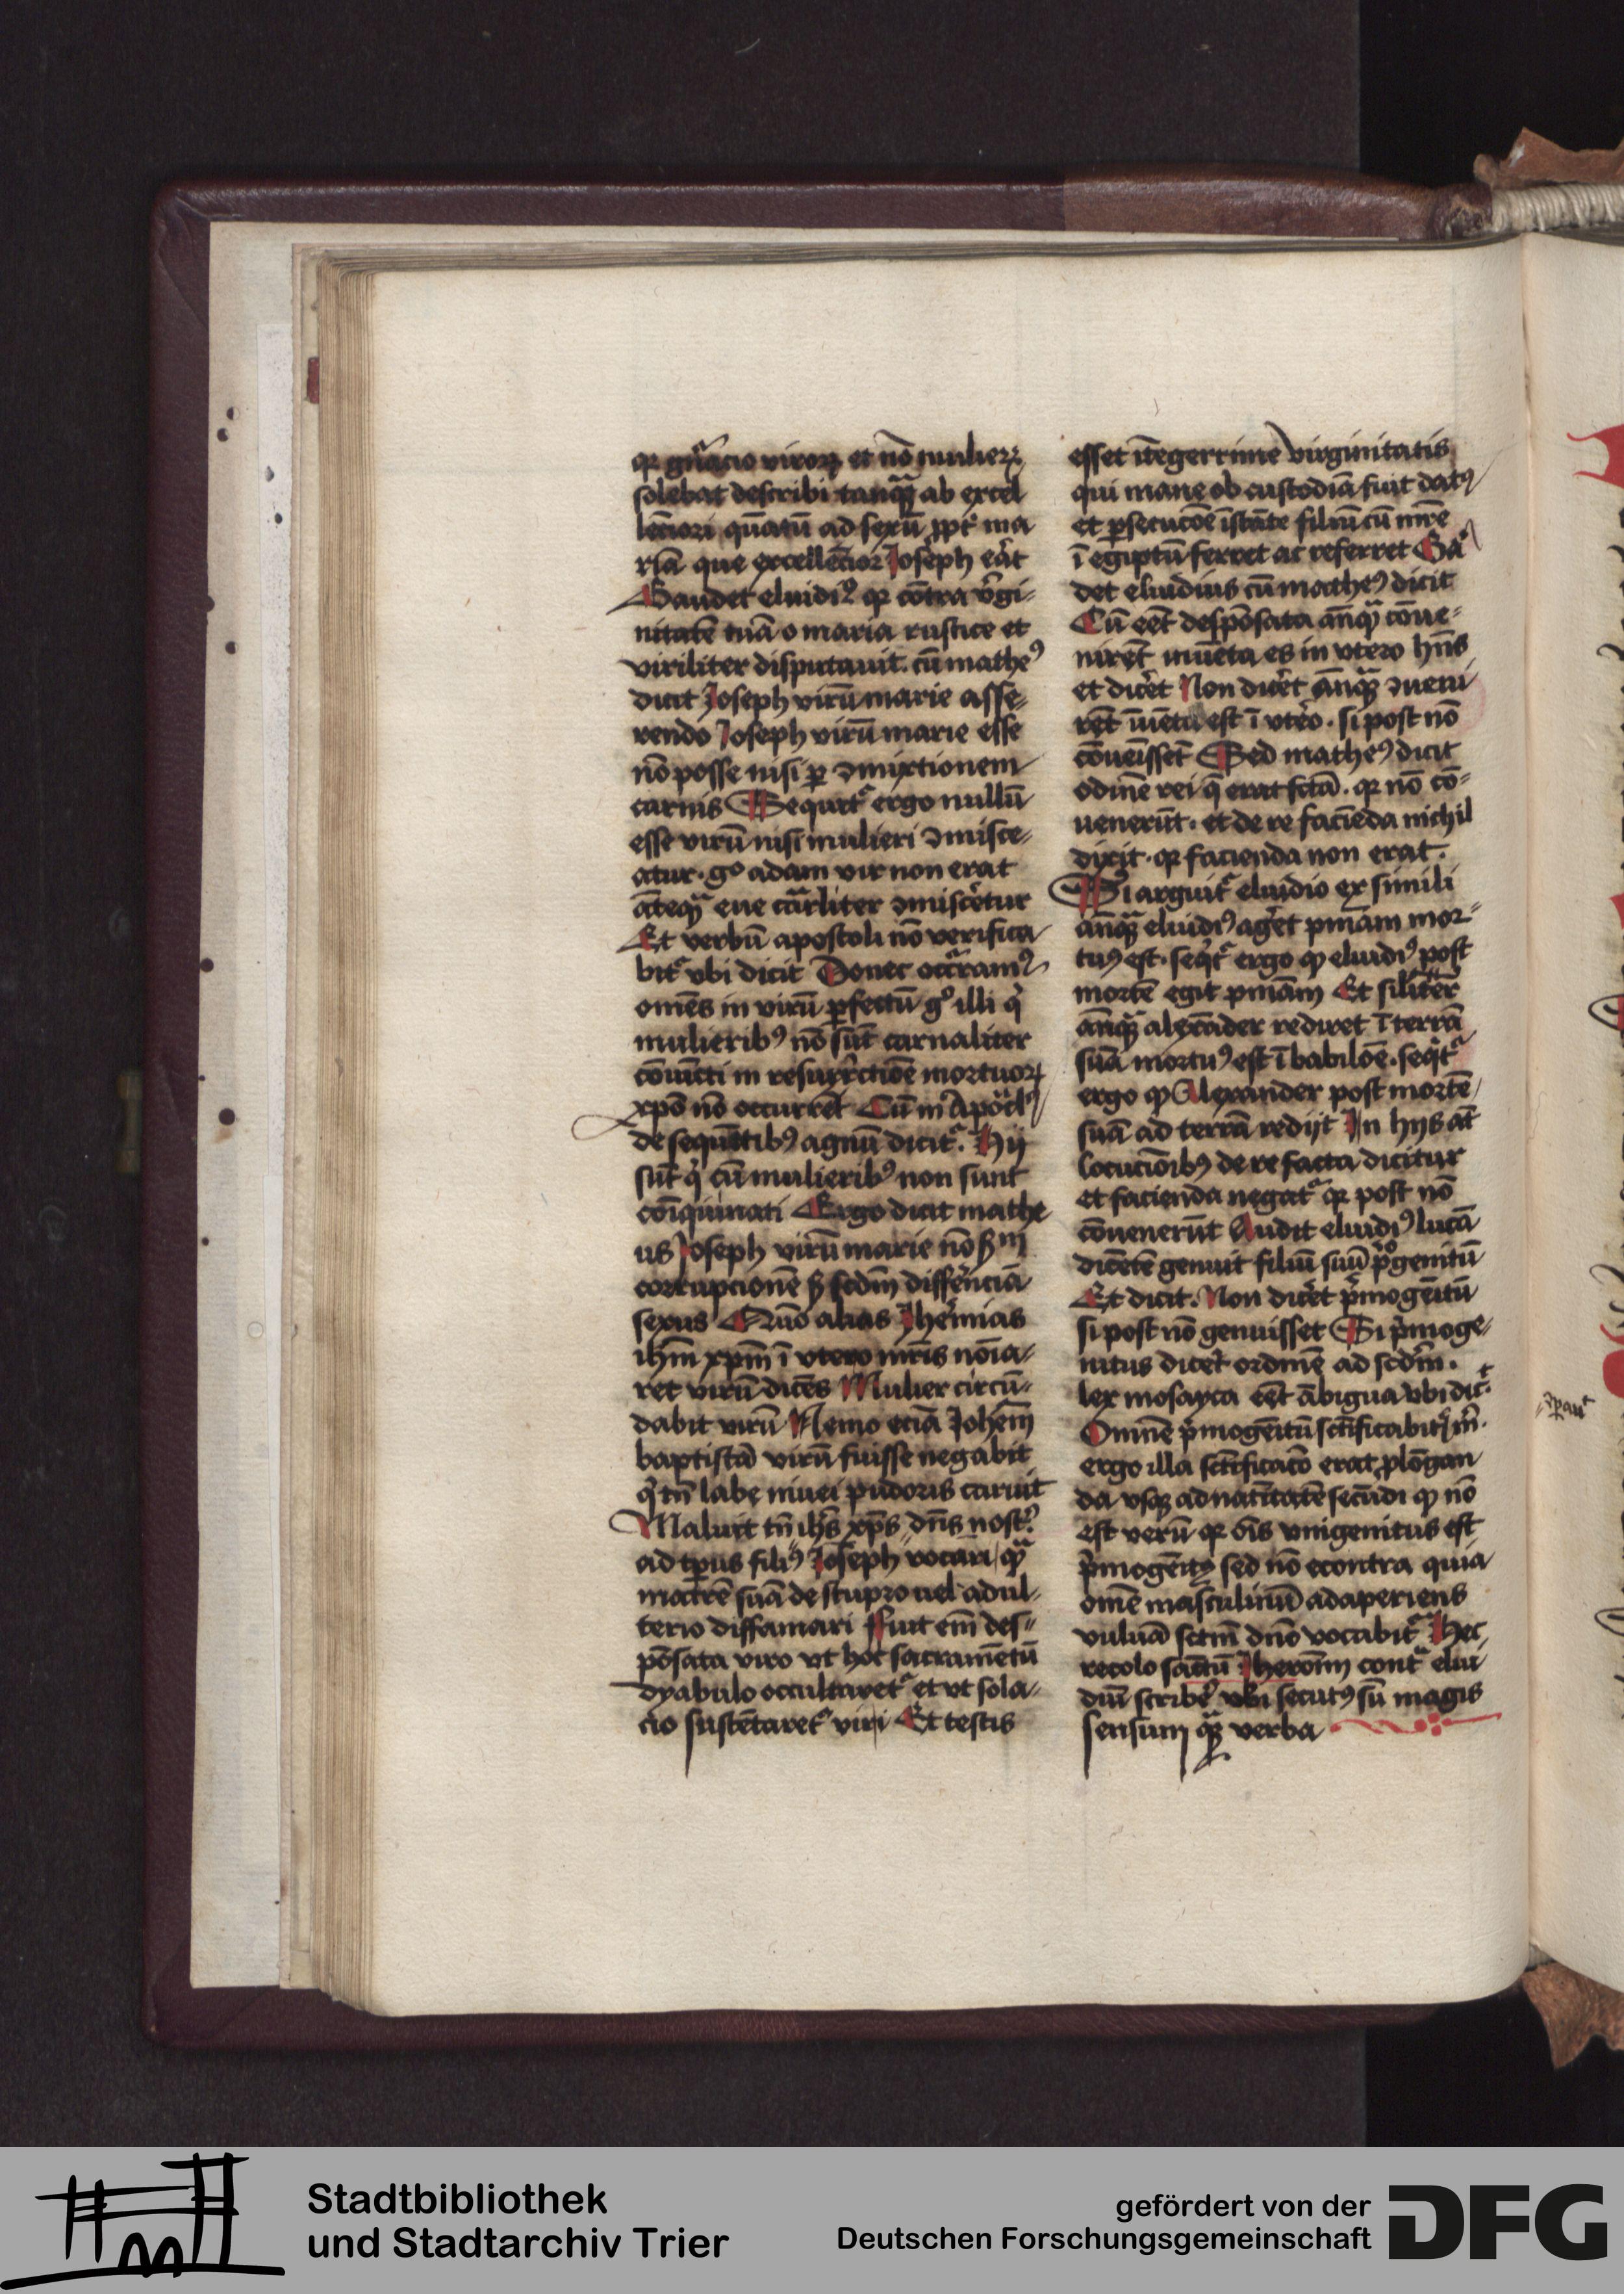 qꝛ gn̄acio viroꝝ et nō mulieꝝ
solebat describi tanqᷓꝫ ab excel
lēciori quātū ad sexū ꝓpt̉ ma
riā que excellēcior Joseph eāt
Gaudet eluidiꝰ qꝛ cōtra v̉gi⸗
nitatē tuā o maria rustice et
viriliter disputauit. cū matheꝰ
dicit Joseph virū marie asse⸗
rendo Joseph virū marie esse
nō posse nisi ꝑ ꝯmixtionem
carnis Sequit᷑ ergo nullū
esse virū nisi mulieri ꝯmisce⸗
atur. gͦ adam vir non erat
āteqᷓ eue cᷓrliter ꝯmisc̉etur
Et verbū apostoli nō verifica
bit᷑ vbi dicit Donec occᷓramꝰ
omēs in virū ꝑfectū gͦ illi qͥ
mulieribꝰ nō sūt carnaliter
cōuicti in resurr̉ctiōe mortuoꝝ
xpō nō occurrēt Cū in Apocͣlꝰ
de sequētibꝰ agnū dicit᷑. Hij
sūt qͥ cū mulieribꝰ non sunt
cōiquinati Ergo dicit mathe
us Joseph virū marie nō ẜm
corrupcionē ẜ scdm̄ differ̉nciā
sexus Quō alias Jher̉mias
ihm̄ xpm̄ ī vtero mr̄is nōia⸗
ret virū dicēs Mulier circū⸗
dabit virū Nemo eciā Johēm
baptistā virū fuisse negabit
qͥ tn̄ labe niuei pudoris caruit
Maluit tn̄ ihs̄ xp̄s dn̄s nost̉
ad tp̄us filiꝰ Joseph vocari qᷓ
matrē suā de stupro uel adul⸗
terio diffamari Ffuit em̄ des⸗
pōsata viro vt hoc sacramētū
dyabulo occultaret᷑ et vt sola⸗
cio sustētaret᷑ viri Et testis
esset ītegerrime virginitatis
qui mane ob custodiā fuit datꝰ
et ꝑsecucōe īstāte filiū cū mr̄e
ī egiptū ferret ac referret Ga᷑
det eluidius cū matheꝰ dicit
Cū eēt despōsata an̄qᷓ cōue⸗
nirēt inuēta es in vtero hn̄s
et dic̉et Non dic̉et an̄qᷓꝫ ꝯueni
rēt īuēta est ī vt̉o. si post nō
cōueīsset Sed matheꝰ dicit
odinē rei q̄ erat fctā. qꝛ nō cō⸗
uenerūt. et de re faciēda nichil
dixit. qꝛ facienda non erat.
Si arguit᷑ eluidio ex simili
an̄qᷓꝫ eluidiꝰ ag̉et pniam mor⸗
tuꝰ est. seqͥt᷑ ergo ꝙ eluidiꝰ post
mortē egit pniam Et silit̉er
an̄qᷓ alexāder rediret ī terrā
suā mortuꝰ est ī babilōe. seqͥt᷑
ergo ꝙ Alexander post mortē
suā ad terrā redijt In hijs at̄
locucionibꝰ de re facta dicitur
et facienda negat᷑ qꝛ post nō
cōuenerūt Audit eluidiꝰ lucā
dicētē genuit filiū suū pͥᵒgenitū
Et dicit. Non dic̉et pͥmogēitū
si post nō genuisset Si pͥmoge⸗
nitus dicet̉ ordinē ad scdm̄.
lex mosayca eēt ābigua vbi dic̄t
Omne pͥmogēitū sctīficabit᷑ m̄.
ergo illa sctīficacō erat ꝓlōgan
da vsqꝫ ad natitatē secūdi ꝙ nō
est verū qꝛ oīs vnigenitus est
pͥmogēitꝰ sed nō econtra quia
omē masculinū adaperiens
vuluā sctm̄ dn̄o vocabit᷑ Hec
recolo sactū Jheronim cont᷑ elui
diū scribe᷑ vbi secutꝰ sū magis
sensum qᷓꝫ verba
Stadtbibliothek
und Stadtarchiv Trier
gefördert von der
Deutschen Forschungsgemeinschaft
DFG